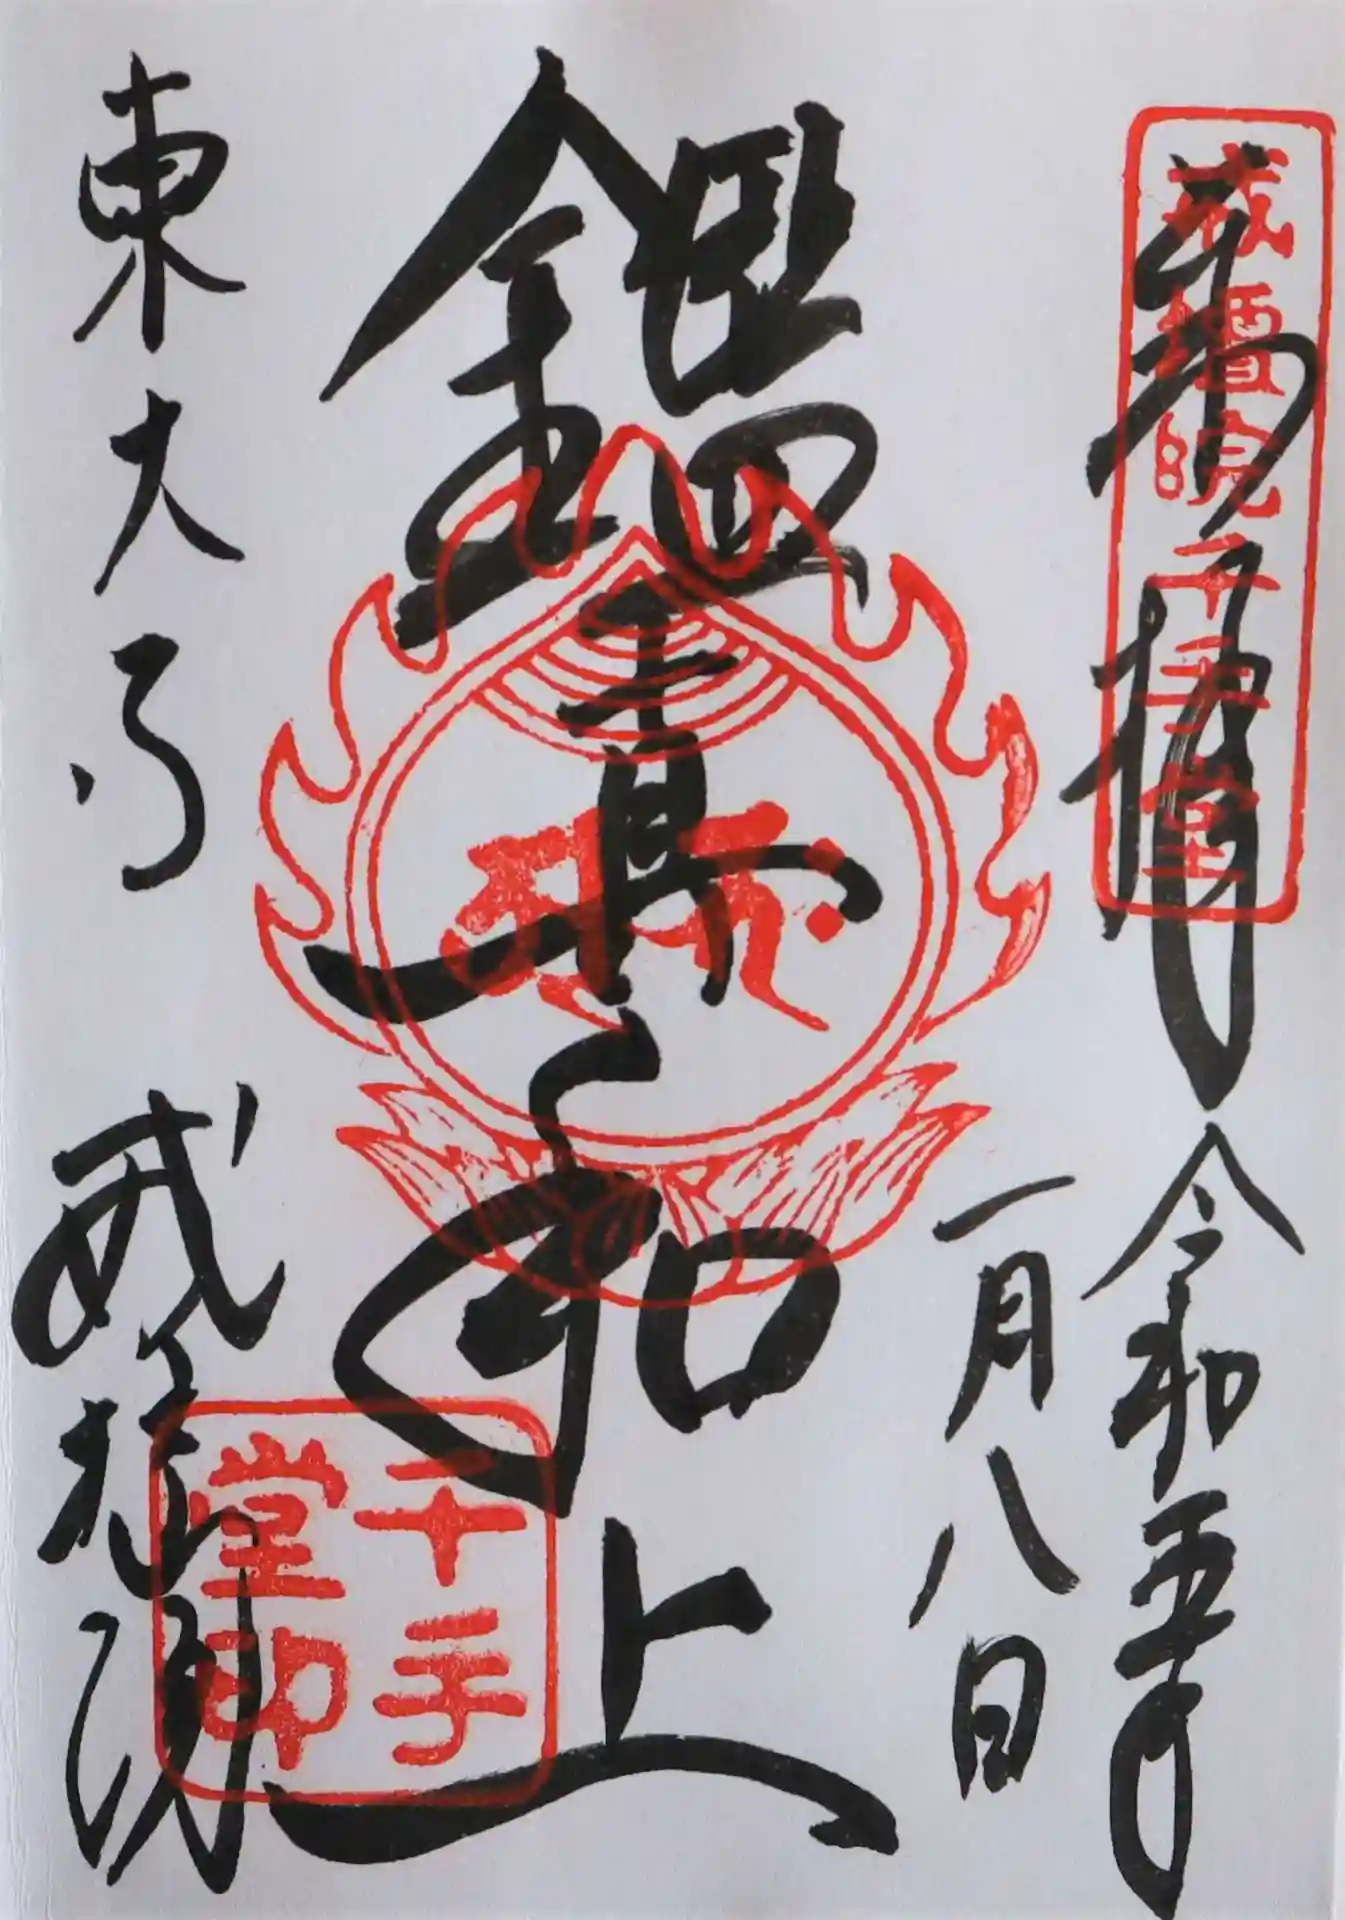 奉拝
戒壇院千手堂
令和五年
一月八日
鑑真和上
東大寺
戒壇院
千手
堂印